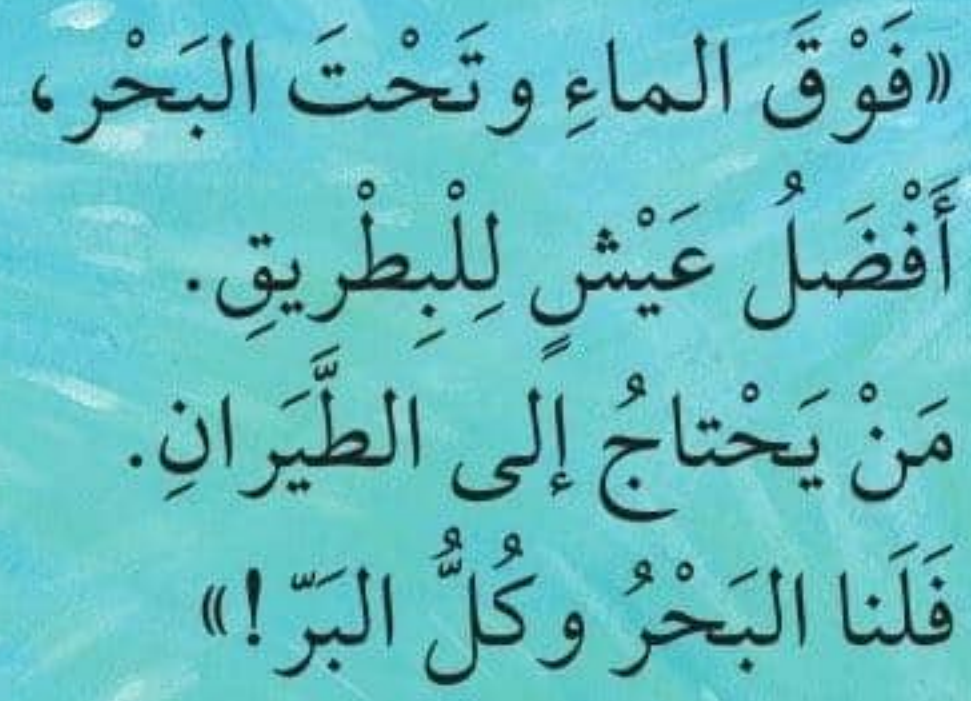 «فَوْقَ الماءِ وتَحْتَ البَحْر،
أَفْضَلُ عَيْشٍ لِلْبِطْريقِ.
مَنْ يَحْتاجُ إلى الطَّيَرانِ.
فَلَنا البَحْرُ وكُلُّ البَرّ!»